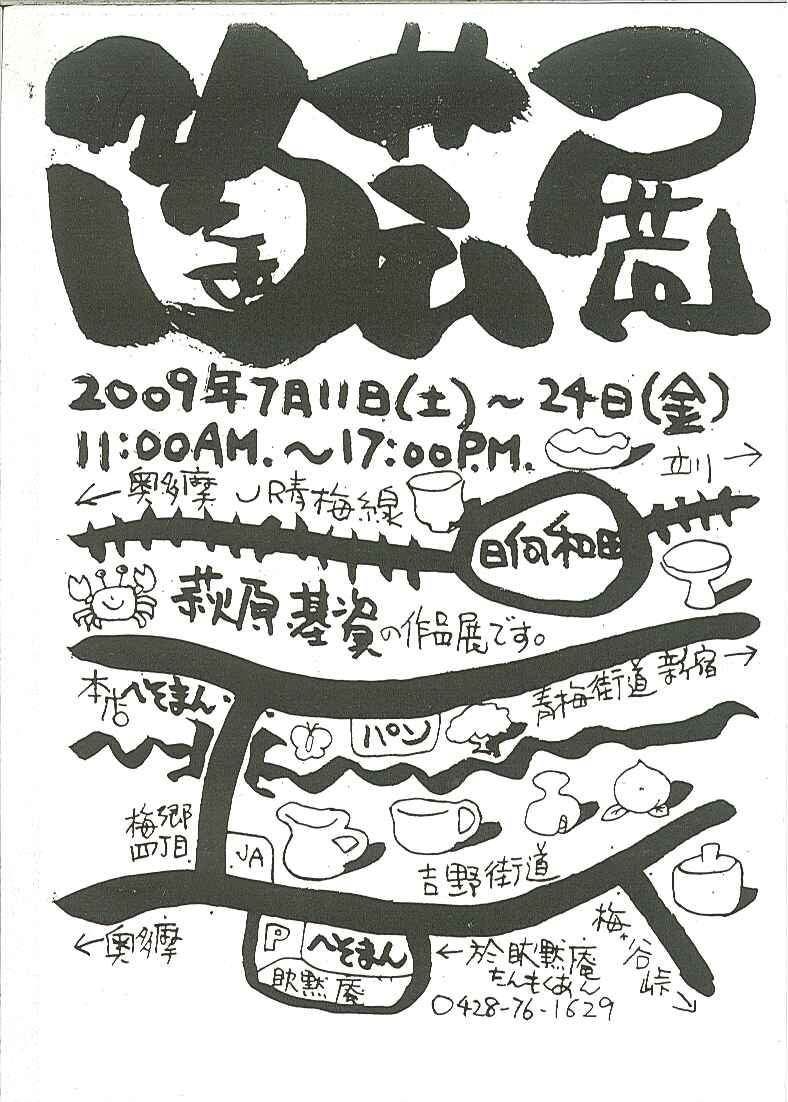 陶芸展
2009年7月11日(土)~24日(金)
11:00AM.~17:00P.M.
立川→
←奥多摩 JR青梅線
日向和田
萩原基資の作品展です。
本店へそまん
青梅街道 新宿→
パン
梅郷四丁目
JA
吉野街道
←奥多摩
P
へそまん
眈黙庵
←於眈黙庵
たんもくあん
0428-76-1629
梅ヶ谷峠